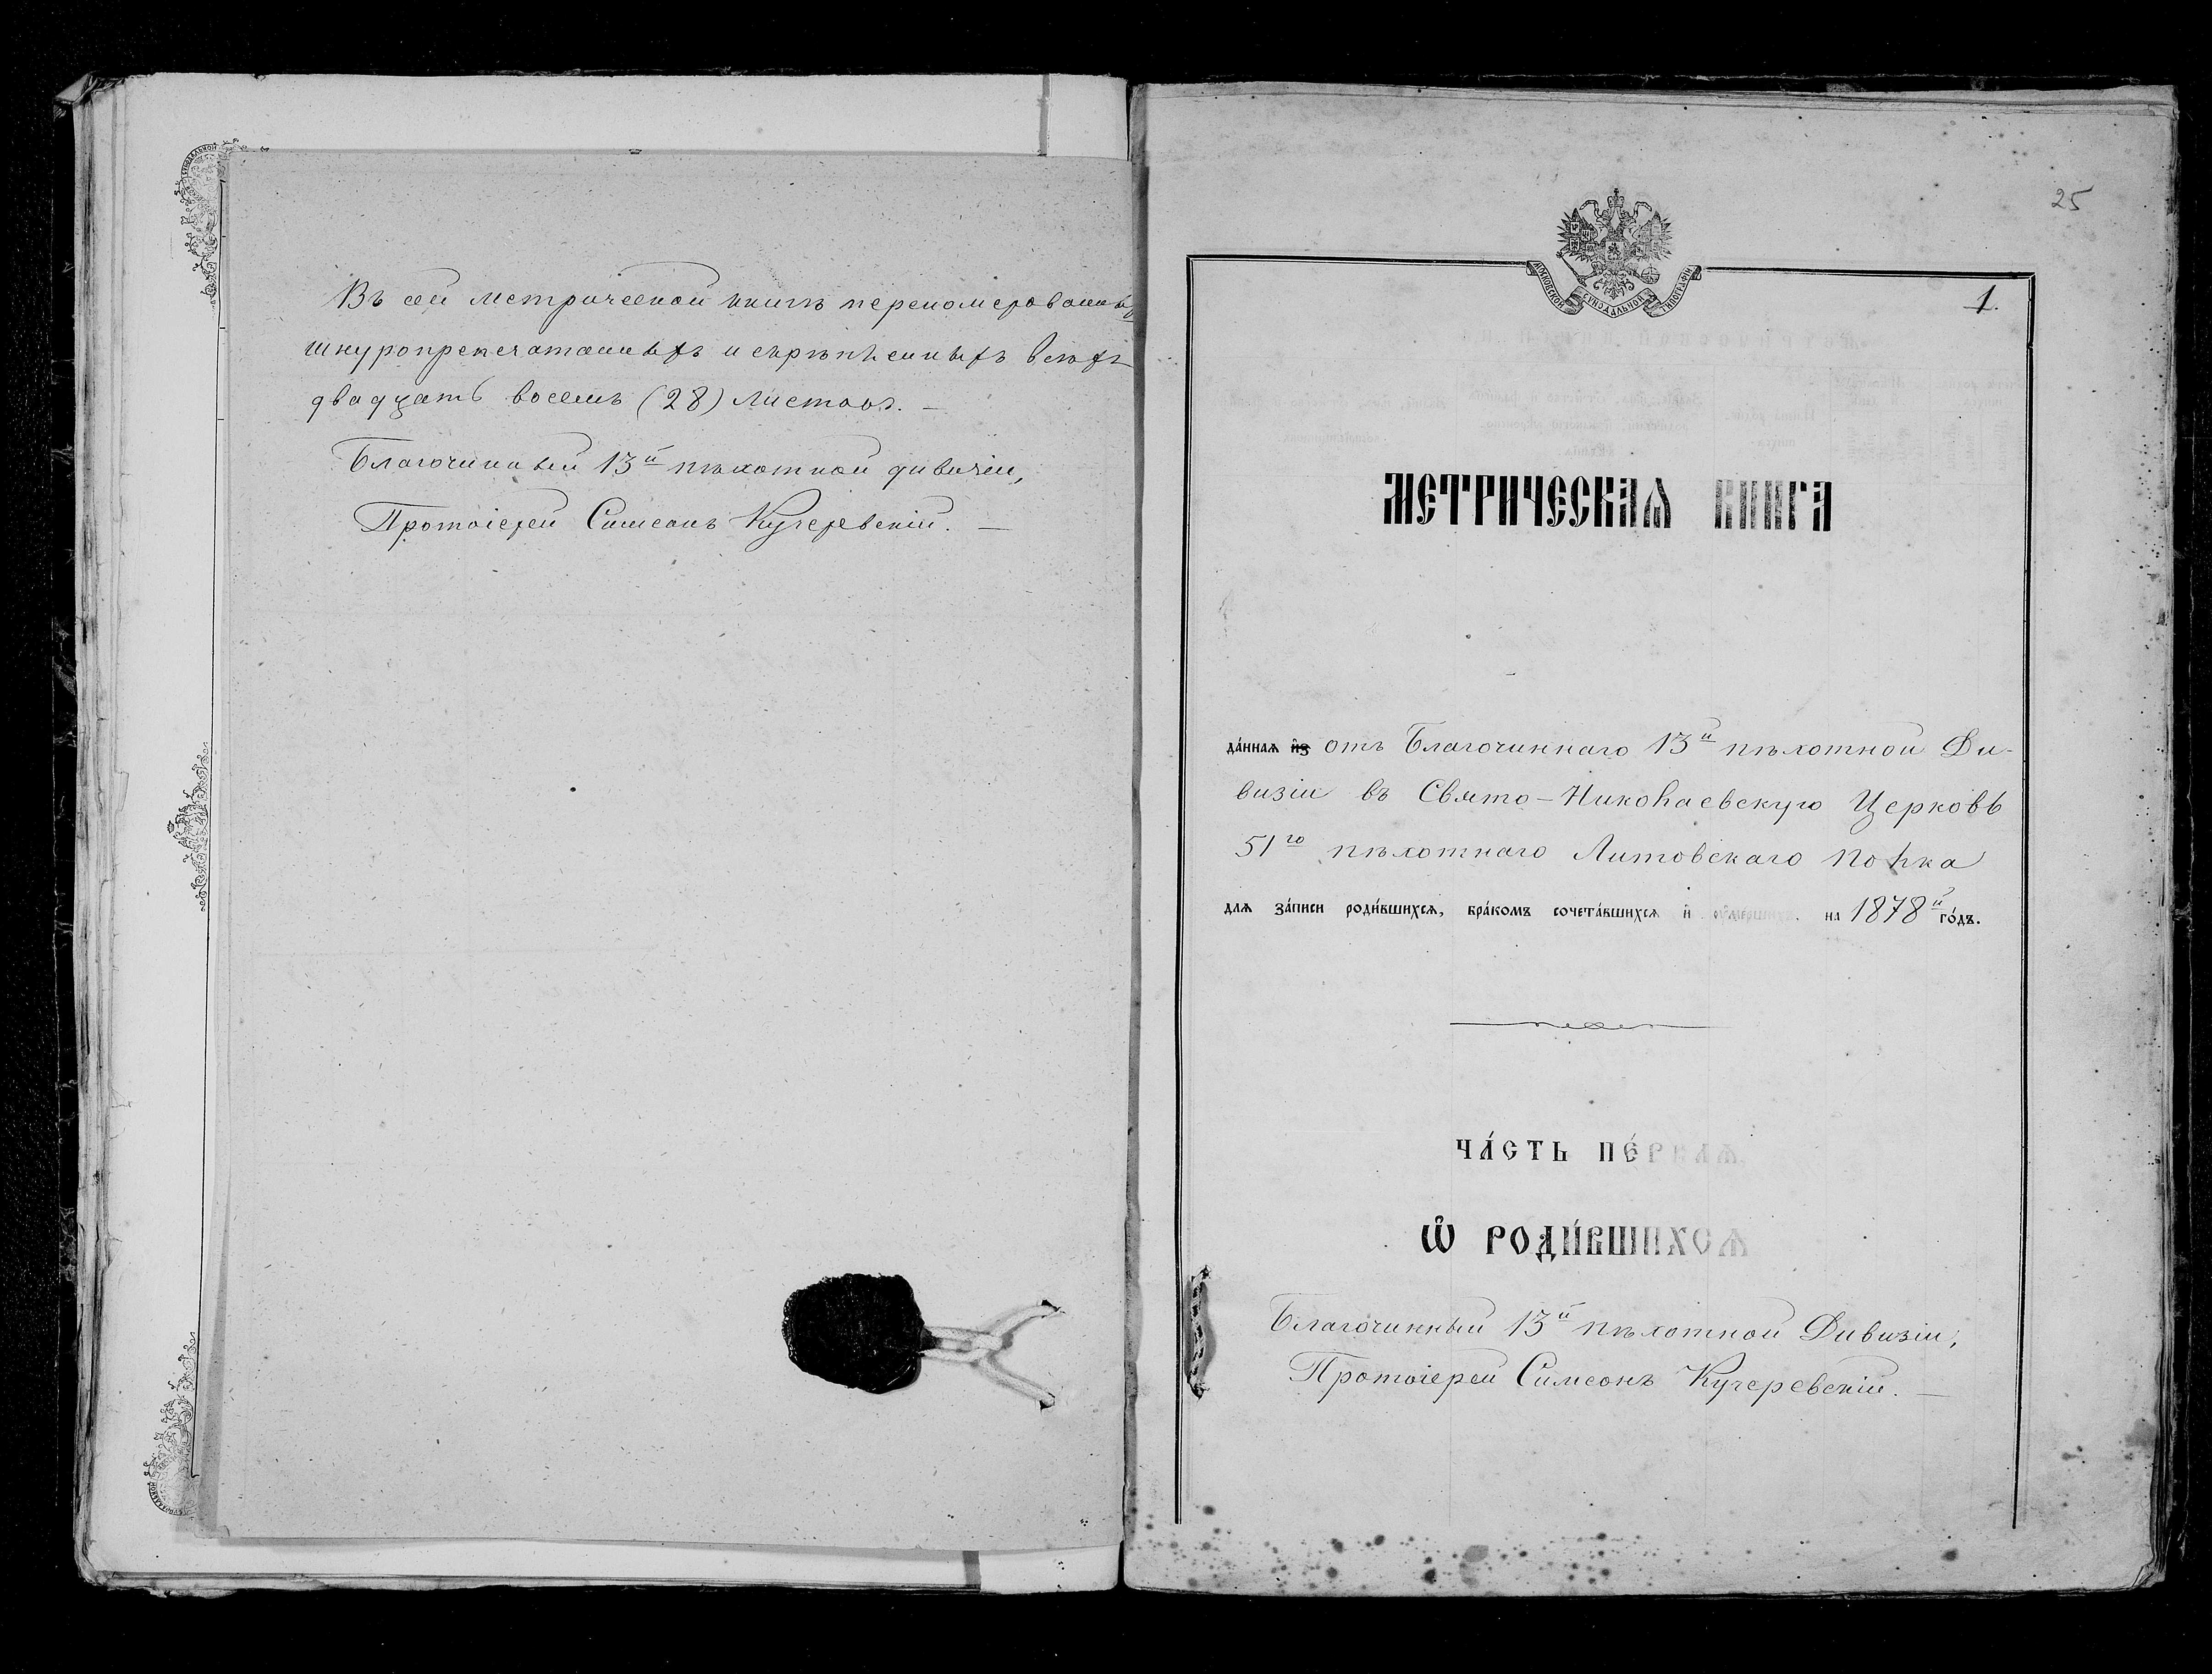 Въ сей метрической книгѣ переномерованныхъ
шнуропрепечатанныхъ и скрѣпленныхъ всѣхъ
двадцать восемь (28) листовъ. —
Благочинный 13й пѣхотной дивизіи,
Протоіерей Симеонъ Кучеревскій. —
25
МОСКОВСКОЙ СѴНОДАЛЬНОЙ ТИПОГРАФІИ
1.
МЕТРИЧЕСКАѦ КНИГА
да́ннаѧ и҆з̾ отъ Благочиннаго 13й пѣхотной Ди-
визіи въ Свято-Николаевскую Церковь
51го пѣхотнаго Литовскаго полка
длѧ за́писи роди́вшихсѧ, бра́комъ сочета́вшихсѧ и҆ ᲂу҆ме́ршихъ. на 1878й го́дъ.
ЧА́СТЬ ПЕ́РВАѦ.
Ѡ҆ РОДИ́ВШИХСѦ
Благочинный 13й пѣхотной Дивизіи,
Протоіерей Симеонъ Кучеревскій. —